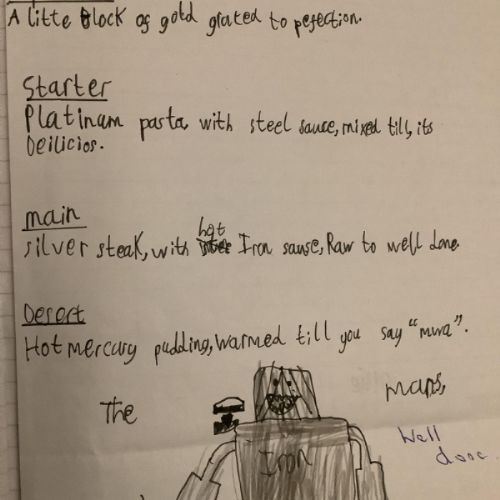 A litte block of gold grated to pefection.
Starter
Platinam pasta with steel sauce, mixed till, its
Deilicios.
main
silver steak, with hot Iron sause, Raw to well done.
Desert
Hot mercury pudding, warmed till you say "mwa".
The
mans,
Iron
Well
done.